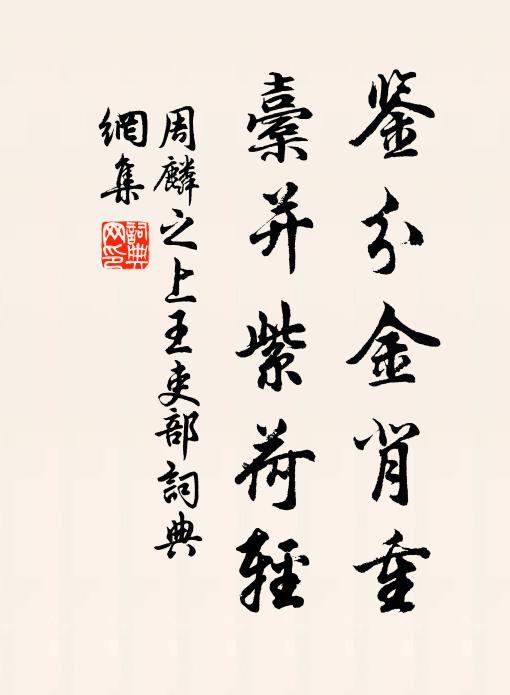 鉴分金背重
橐并紫荷輕
周麟之上王吏部詞典
網集
詞典網印